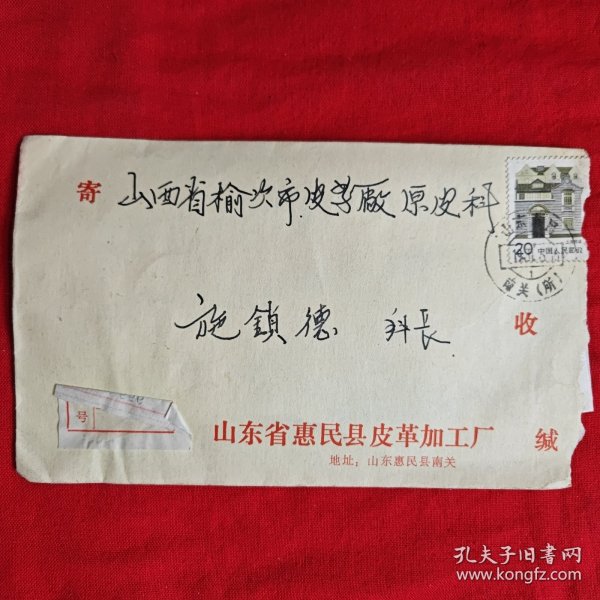 寄
山西省榆次市皮革廠原皮科
20分
中国人民邮政
南关(所)
施鎖德 科長
收
号
山东省惠民县皮革加工厂 缄
地址:山东惠民县南关
孔夫子旧书网
www.kongfz.com